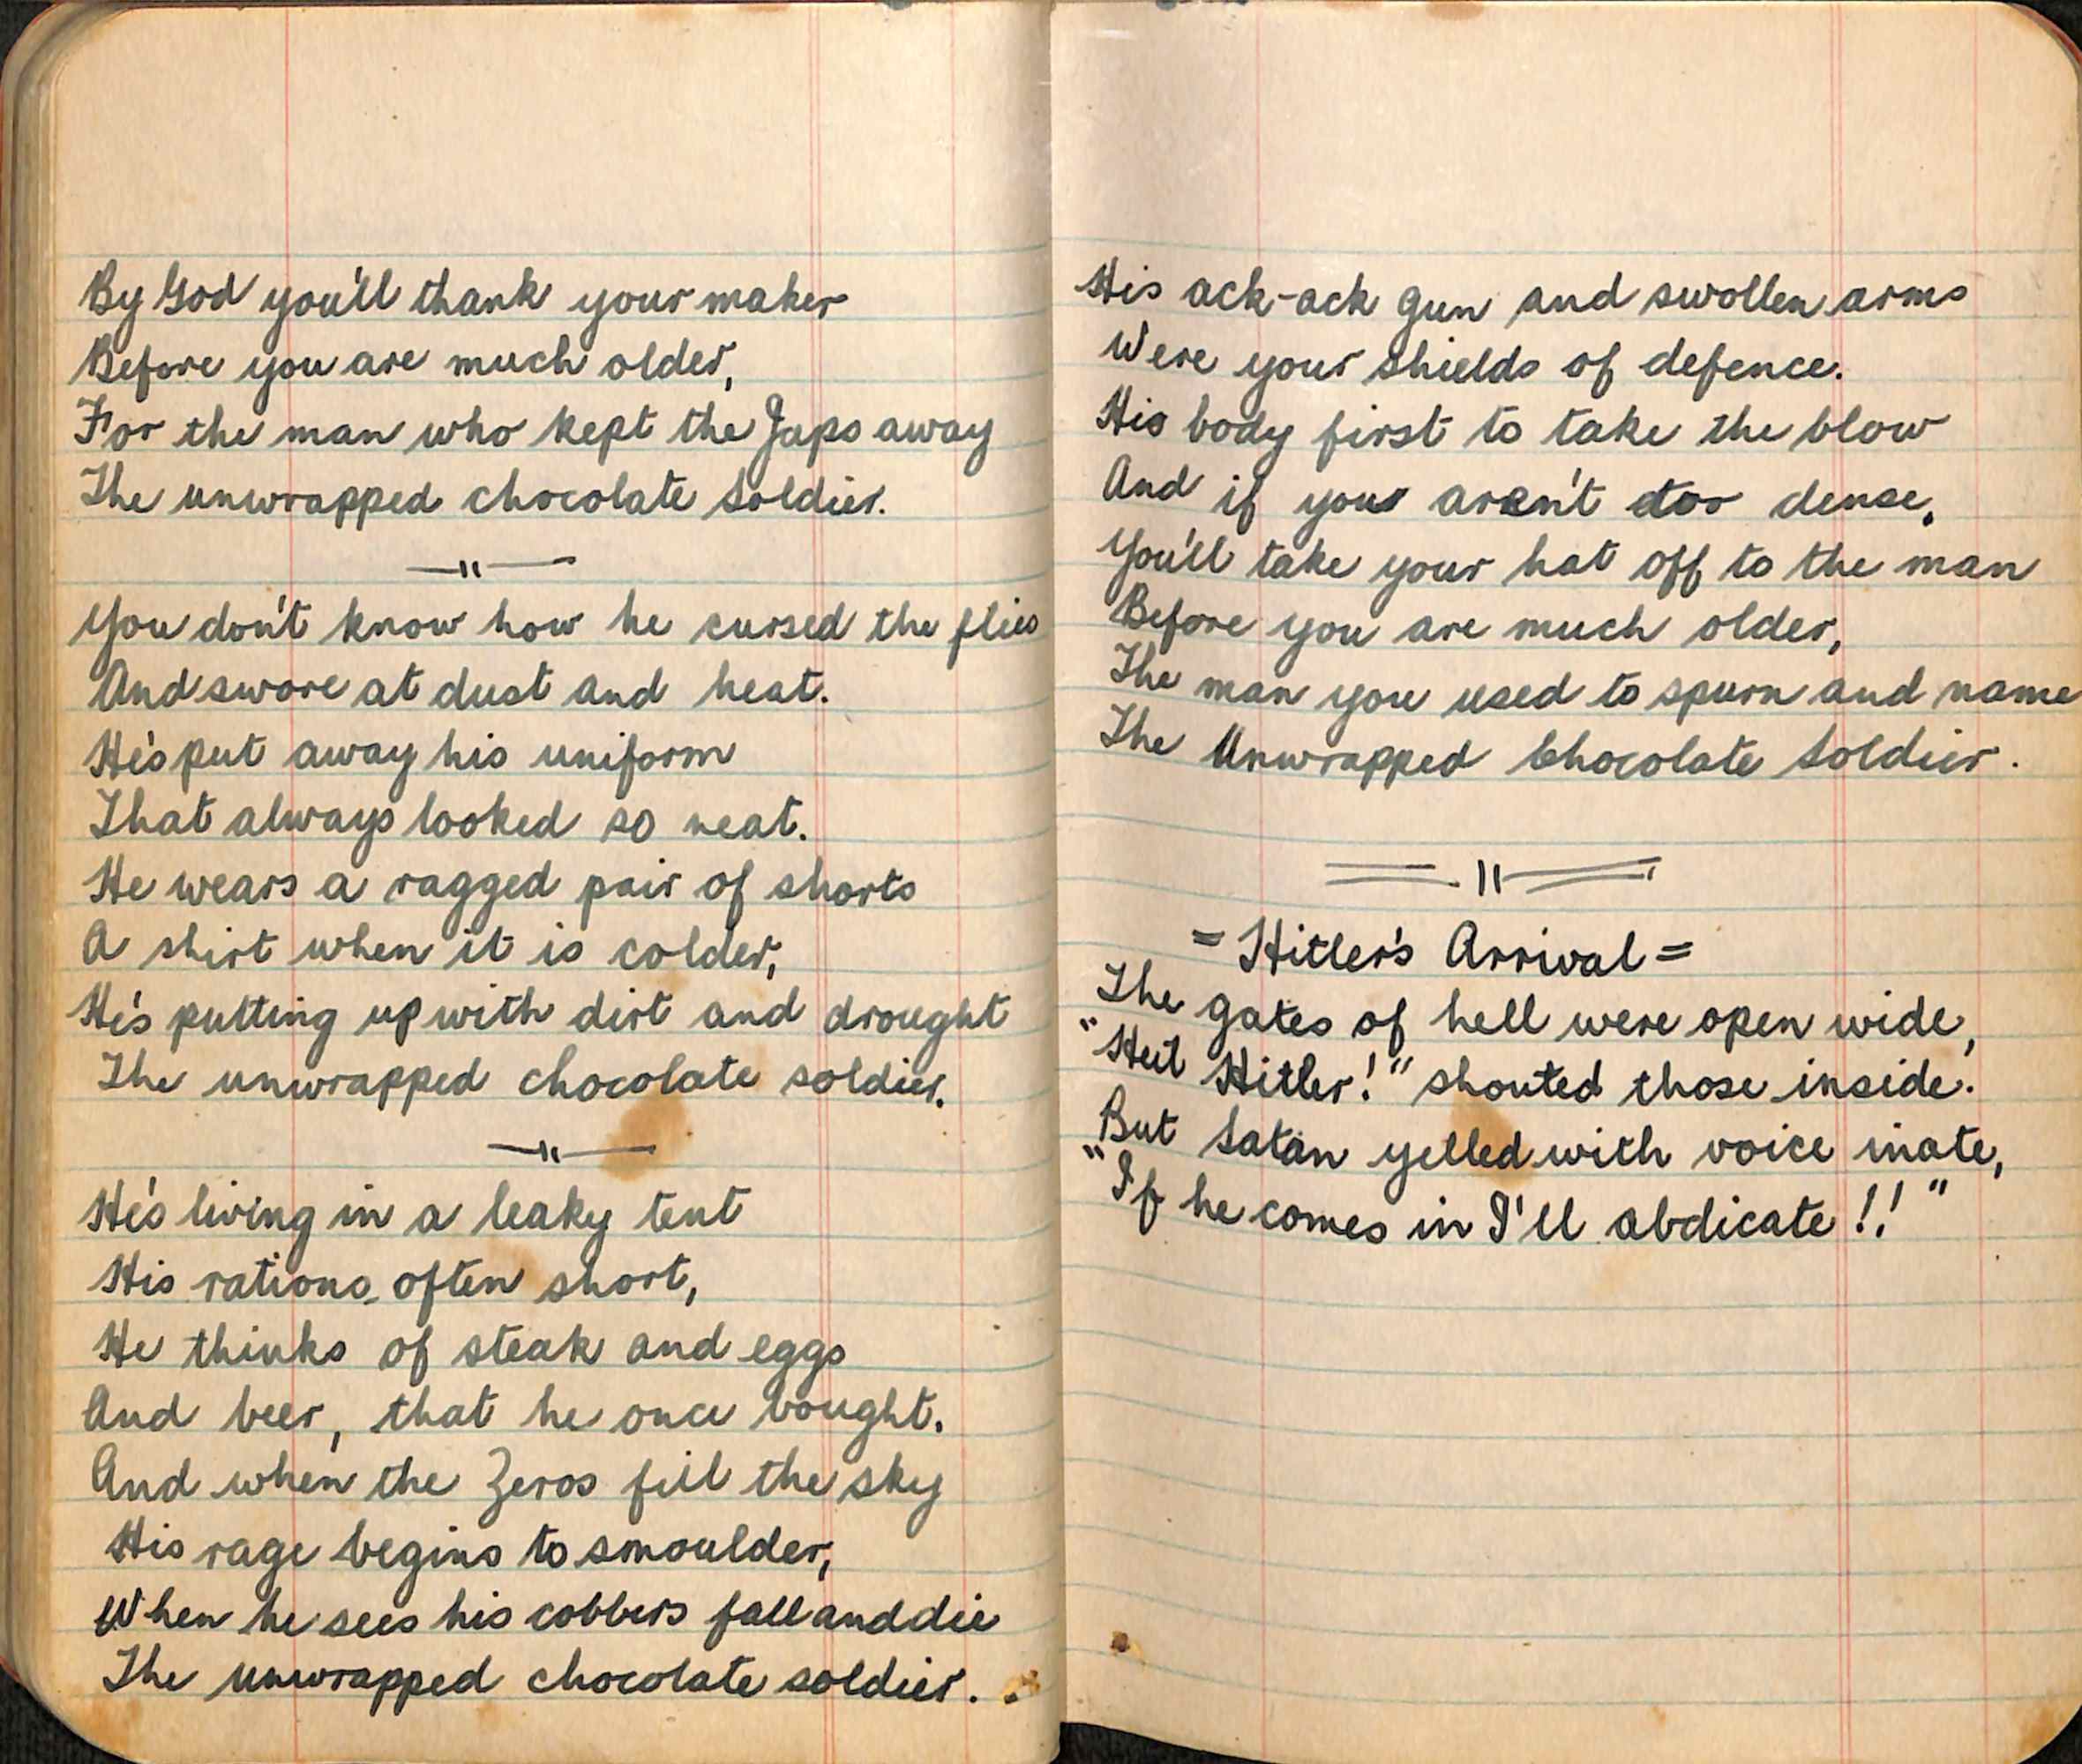 By God you'll thank your maker
Before you are much older,
For the man who kept the Japs away
The unwrapped chocolate Soldier.
You don't know how he cursed the flies
And swore at dust and heat.
He's put away his uniform
That always looked so neat.
He wears a ragged pair of shorts
A shirt when it is colder,
He's putting up with dirt and drought
The unwrapped chocolate soldier.
He's living in a leaky tent
His rations often short,
He thinks of steak and eggs
And beer, that he once bought.
And when the Zeros fill the sky
His rage begins to smoulder,
When he sees his cobbers fall and die
The unwrapped chocolate soldier.
His ack-ack gun and swollen arms
Were your shields of defence.
His body first to take the blow
And if you aren't too dense,
You'll take your hat off to the man
Before you are much older,
The man you used to spurn and name
The Unwrapped Chocolate Soldier.
= Hitler's Arrival =
The gates of hell were open wide,
"Heil Hitler!" shouted those inside.
But Satan yelled with voice inate,
"If he comes in I'll abdicate!!"